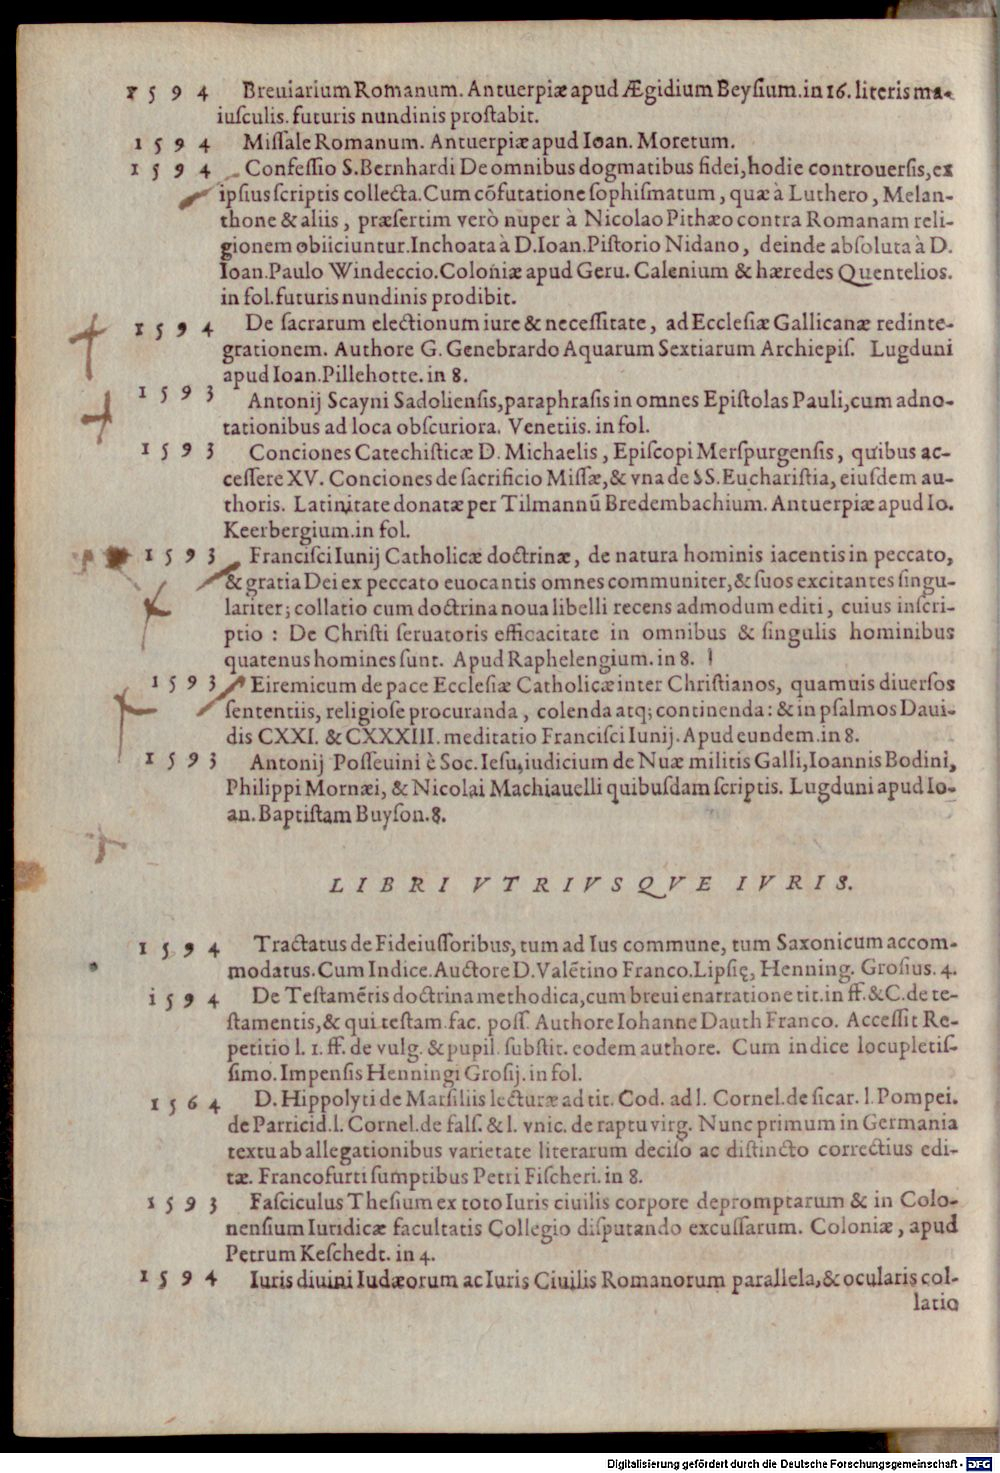 1594 Breuiarium Romanum. Antuerpiæ apud Ægidium Beysium. in 16. literis ma-
iusculis. futuris nundinis prostabit.
1594 Missale Romanum. Antuerpiæ apud Ioan. Moretum.
1594 Confessio S. Bernhardi De omnibus dogmatibus fidei, hodie controuersis, ex
ipsius scriptis collecta. Cum cōfutatione sophismatum, quæ à Luthero, Melan-
thone & aliis, præsertim verò nuper à Nicolao Pithæo contra Romanam reli-
gionem obiiciuntur. Inchoata à D. Ioan. Pistorio Nidano, deinde absoluta à D.
Ioan. Paulo Windeccio. Coloniæ apud Geru. Calenium & hæredes Quentelios.
in fol. futuris nundinis prodibit.
1594 De sacrarum electionum iure & necessitate, ad Ecclesiæ Gallicanæ redinte-
grationem. Authore G. Genebrardo Aquarum Sextiarum Archiepis. Lugduni
apud Ioan. Pillehotte. in 8.
1593 Antonij Scayni Sadoliensis, paraphrasis in omnes Epistolas Pauli, cum adno-
tationibus ad loca obscuriora. Venetiis. in fol.
1593 Conciones Catechisticæ D. Michaelis, Episcopi Merspurgensis, quibus ac-
cessere XV. Conciones de sacrificio Missæ, & vna de SS. Eucharistia, eiusdem au-
thoris. Latinitate donatæ per Tilmannū Bredembachium. Antuerpiæ apud Io.
Keerbergium. in fol.
1593 Francisci Iunij Catholicæ doctrinæ, de natura hominis iacentis in peccato,
& gratia Dei ex peccato euocantis omnes communiter, & suos excitantes singu-
lariter; collatio cum doctrina noua libelli recens admodum editi, cuius inscri-
ptio : De Christi seruatoris efficacitate in omnibus & singulis hominibus
quatenus homines sunt. Apud Raphelengium. in 8.
1593 Eiremicum de pace Ecclesiæ Catholicæ inter Christianos, quamuis diuersos
sententiis, religiose procuranda, colenda atq; continenda: & in psalmos Daui-
dis CXXI. & CXXXIII. meditatio Francisci Iunij. Apud eundem. in 8.
1593 Antonij Posseuini è Soc. Iesu, iudicium de Nuæ militis Galli, Ioannis Bodini,
Philippi Mornæi, & Nicolai Machiauelli quibusdam scriptis. Lugduni apud Io-
an. Baptistam Buyson. 8.
LIBRI VTRIVSQVE IVRIS.
1594 Tractatus de Fideiussoribus, tum ad Ius commune, tum Saxonicum accom-
modatus. Cum Indice. Auctore D. Valētino Franco. Lipsię, Henning. Grosius. 4.
1594 De Testamētis doctrina methodica, cum breui enarratione tit. in ff. & C. de te-
stamentis, & qui testam. fac. poss. Authore Iohanne Dauth Franco. Accessit Re-
petitio l. 1. ff. de vulg. & pupil. substit. eodem authore. Cum indice locupletis-
simo. Impensis Henningi Grosij. in fol.
1564 D. Hippolyti de Marsiliis lecturæ ad tit. Cod. ad l. Cornel. de sicar. l. Pompei.
de Parricid. l. Cornel. de fals. & l. vnic. de raptu virg. Nunc primum in Germania
textu ab allegationibus varietate literarum deciso ac distincto correctius edi-
tæ. Francofurti sumptibus Petri Fischeri. in 8.
1593 Fasciculus Thesium ex toto Iuris ciuilis corpore depromptarum & in Colo-
nensium Iuridicæ facultatis Collegio disputando excussarum. Coloniæ, apud
Petrum Keschedt. in 4.
1594 Iuris diuini Iudæorum ac Iuris Ciuilis Romanorum parallela, & ocularis col-
latio
Digitalisierung gefördert durch die Deutsche Forschungsgemeinschaft - DFG